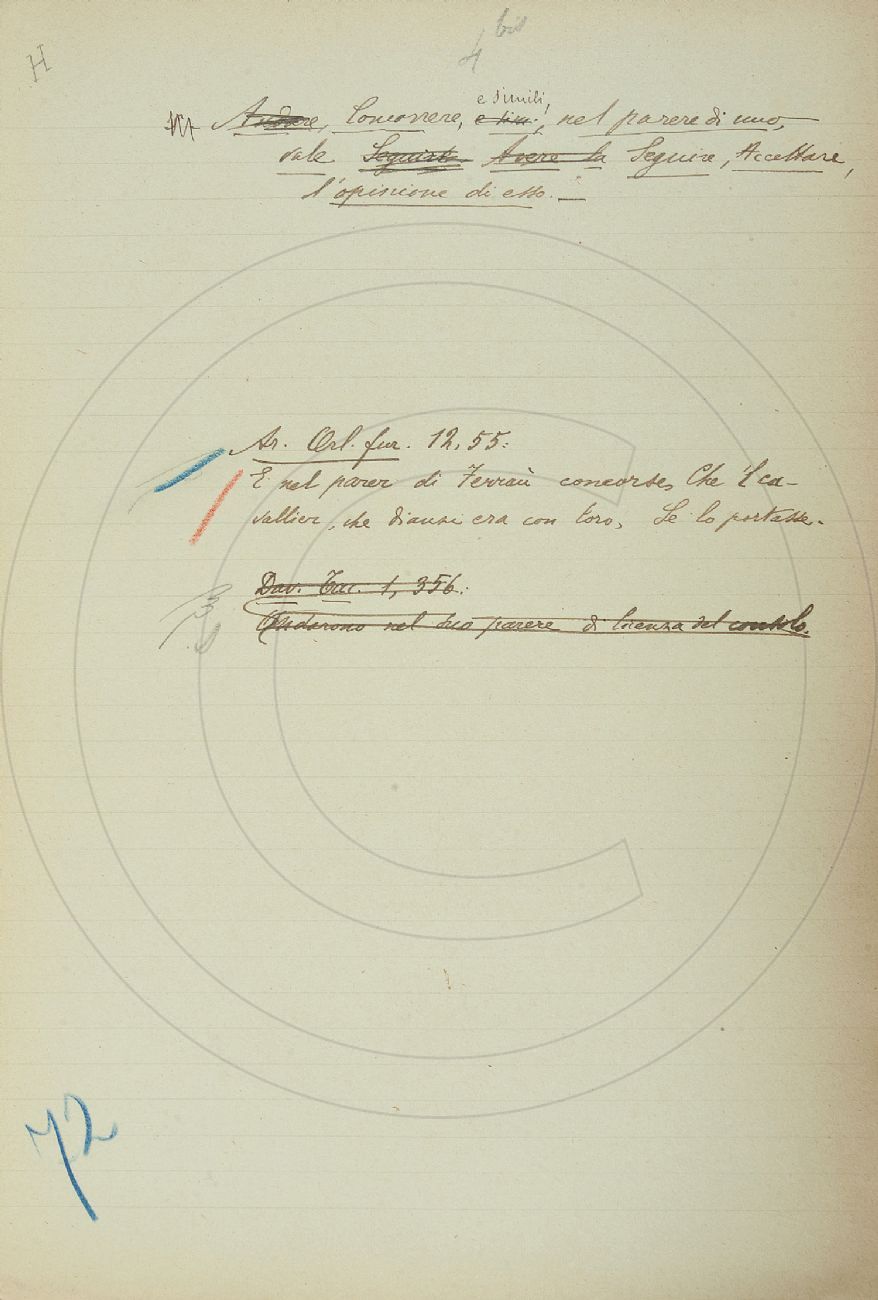 H
4 bis
Andare, Concorrere, e simili, e sim., nel parere di uno,
vale Seguire Avere la Seguire, Accettare,
l'opinione di esso. —
Ar. Orl. fur. 12, 55:
E nel parer di Ferraù concorse, Che 'l ca-
vallier, che dianzi era con loro, Se lo portasse.
Dav. Tac. 1, 356:
Andarono nel suo parere di licenza del consolo.
72